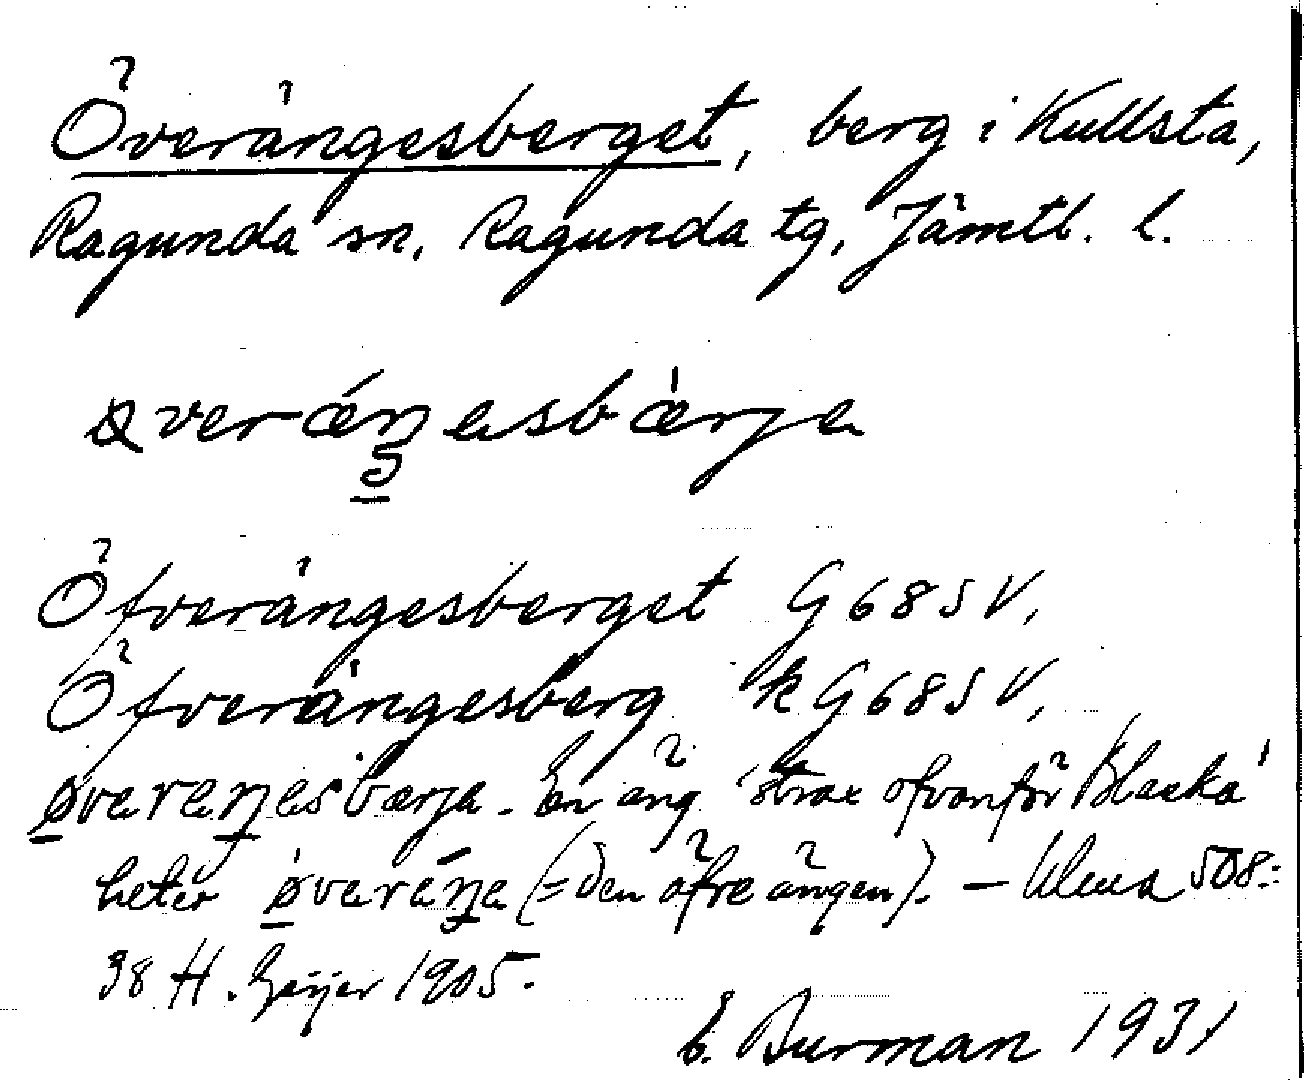 Överängesberget, berg i Kullsta,
Ragunda sn, Ragunda tg, Jämtl. l.
øverǽŋesbǽrja
Öfverängesberget G 68 SV.
Öfverängesberg kG 68 SV.
øvereŋesbærja. En äng 'strax ofvanför Blecka'
heter øveréŋa (= den öfre ängen). – Ulma 508:
38 H. Geijer 1905.
E. Burman 1931